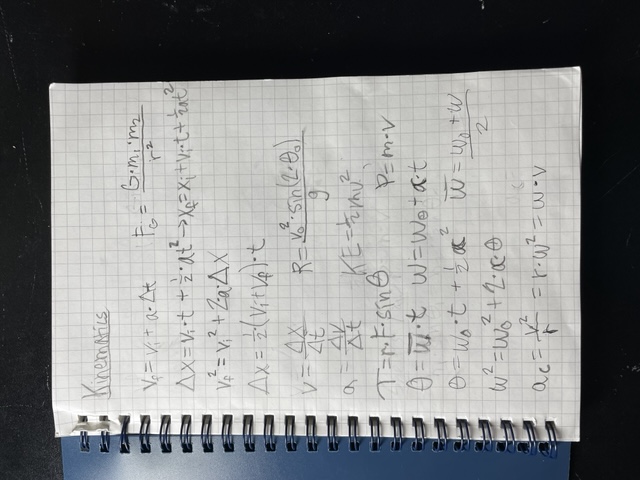 Kinematics
v_f = v_i + a·Δt    F_G = G·m_1·m_2 / r²
Δx = v_i·t + ½·at² → x_f = x_i + v_i·t + ½at²
v_f² = v_i² + 2a·Δx
Δx = ½·(v_i + v_f)·t
v = Δx / Δt    R = v_0²·sin(2·θ_0) / g
a = Δv / Δt    KE = ½mv²
τ = r·F·sinθ    P = m·v
θ = ω̅·t    ω = ω_0 + α·t
θ = ω_0·t + ½α²    ω̅ = ω_0 + ω / 2
ω² = ω_0² + 2·α·θ
a_c = v² / r = r·ω² = ω·v